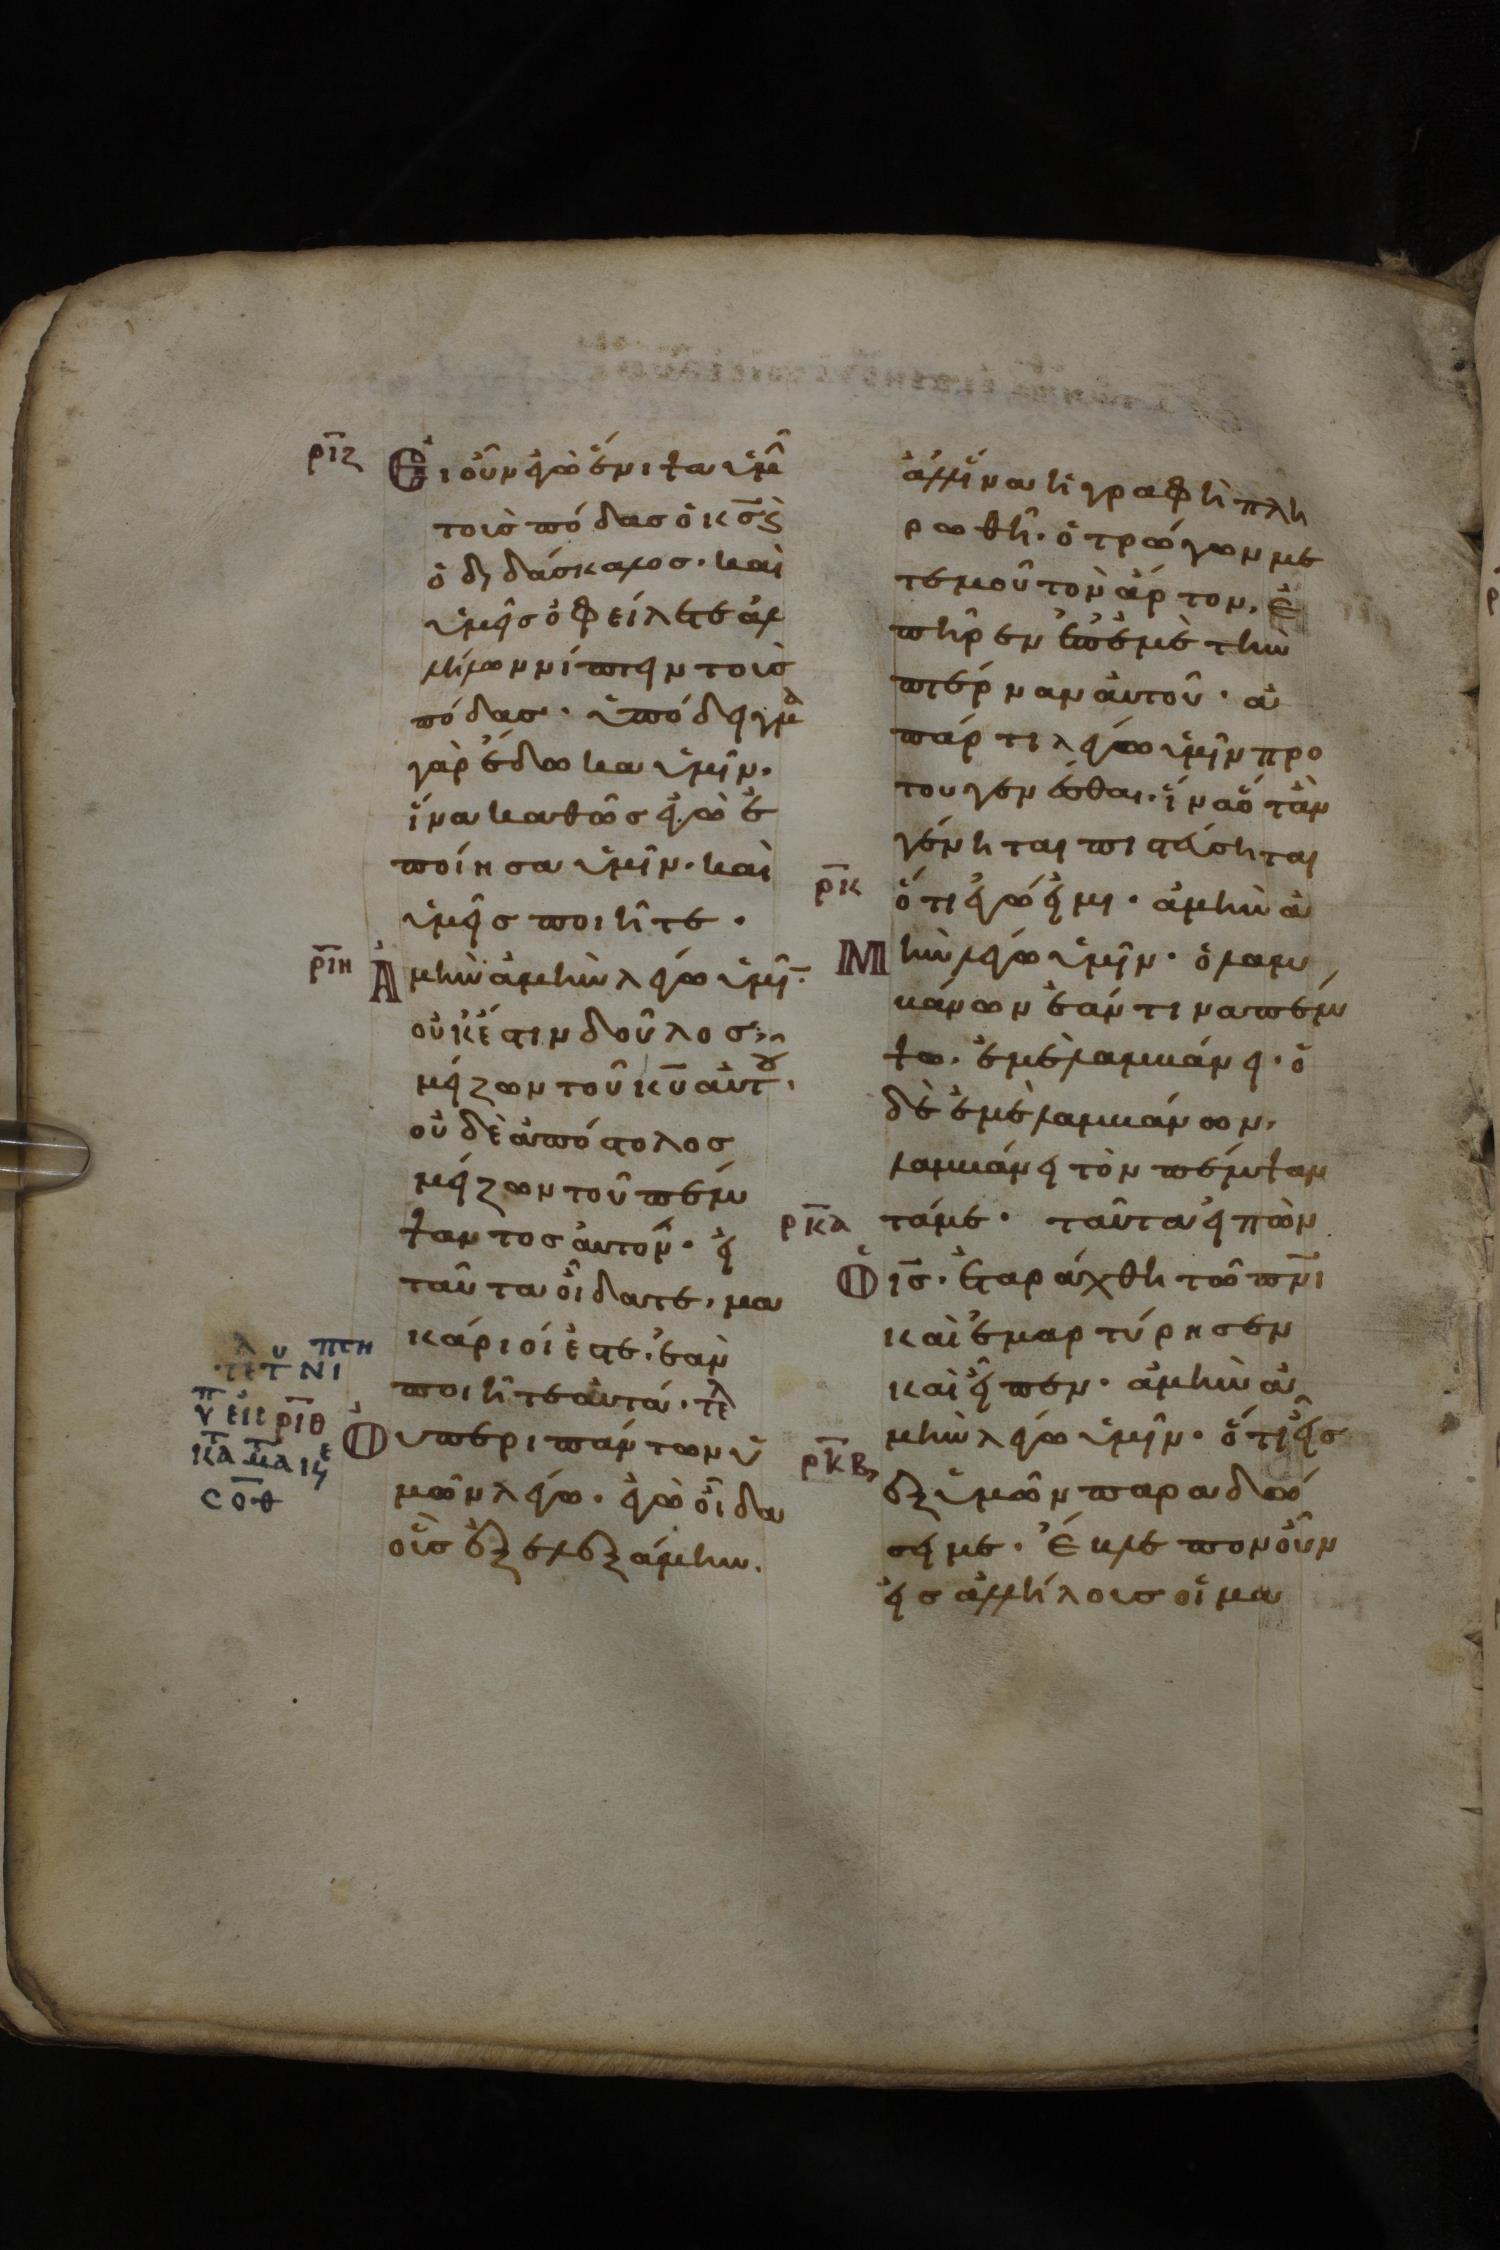 ρ̅ι̅ζ
Εἰ οὖν ἐγὼ ἔνιψα ὑμῶ̅
τοὺσ πόδασ ὁ κ̅σ̅ κ̀
ὁ διδάσκαλοσ· καὶ
ὑμεῖσ ὀφείλετε ἀλ
λήλων νίπτειν τοὺσ
πόδασ· ὑπόδειγμα
γὰρ ἔδωκα ὑμῖν·
ἵνα καθῶσ ἐγὼ ἐ
ποίησα ὑμῖν· καὶ
ὑμεῖσ ποιῆτε·
ρ̅ι̅η
Ἀμὴν ἀμὴν λέγω ὑμῖ̅·
οὐκ ἔστιν δοῦλοσ
μείζων τοῦ κ̅υ̅ αὐτοῦ·
οὐδὲ ἀπόστολοσ
μείζων τοῦ πέμ
ψαντοσ αὐτον· εἰ
ταῦτα οἴδατε, μα
κάριοί ἐστε· ἐὰν
ποιῆτε αὐτά· τελ
ρ̅ι̅θ
Ὀυ περι πάντων ὑ
μῶν λέγω· ἐγὼ οἶδα
οὓσ ἐξελεξάμην.
ἀλλ' ἵνα ἡ γραφὴ πλη
ρωθῆ· ὁ τρώγων με
τ' ἐμοῦ τὸν ἄρτον, ἐ
πῆρεν ἐπ' ἐμὲ τὴν
πτέρναν αὐτοῦ· ἀ
πάρτι λέγω ὑμῖν προ
του γενέσθαι· ἵνα ὅταν
γένηται πιστεύσηται
ρ̅κ
ὅτι ἐγώ εἰμι· ἀμὴν ἀ
Μὴν λέγω ὑμῖν· ὁ λαμ
βάνων ἐάν τινα πέμ
ψω· ἐμὲ λαμβάνει· ὁ
δὲ ἐμὲ λαμβάνων,
λαμβάνει τὸν πέμψαν
ρ̅κ̅α
τά με· ταῦτα εἰπὼν
Ὁ ι̅σ̅· ἐταράχθη τῶ π̅ν̅ι
καὶ ἐμαρτύρησεν
καὶ εἶπεν· ἀμὴν ἀ
μὴν λέγω ὑμῖν· ὅτι εἷσ
ρ̅κ̅β
ἐξ ὑμῶν παραδώ
σει με· Ἔβλεπον οὖν
εἰσ ἀλλήλουσ οἱ μα